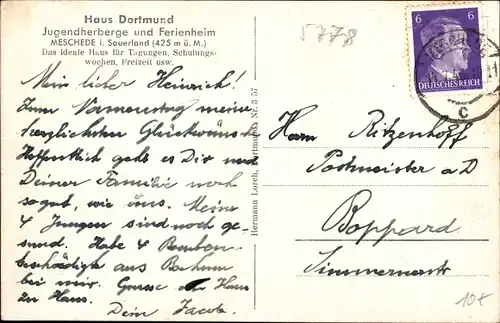 Haus Dortmund
Jugendherberge und Ferienheim
MESCHEDE i. Sauerland (425 m ü. M.)
Das ideale Haus für Tagungen, Schulungs-
wochen, Freizeit usw.
Mein lieber Heinrich!
Zum Namenstag meine
herzlichsten Glückwünsche
Hoffentlich gehts es Dir und
Deiner Familie noch
so gut, wie uns. Meine
4 Jungen sind noch ge-
sund. Habe 4 Bomben-
beschädigte aus Bochum
bei mir. Gruss Haus
zu Haus.
Dein Jacob.
Hermann Lorch, Dortmund, Nr. 3 57
5778
6 6
DEUTSCHES REICH
c
Herrn Ritzenhoff
Postmeister a D
Boppard
Simmernerstr
10+